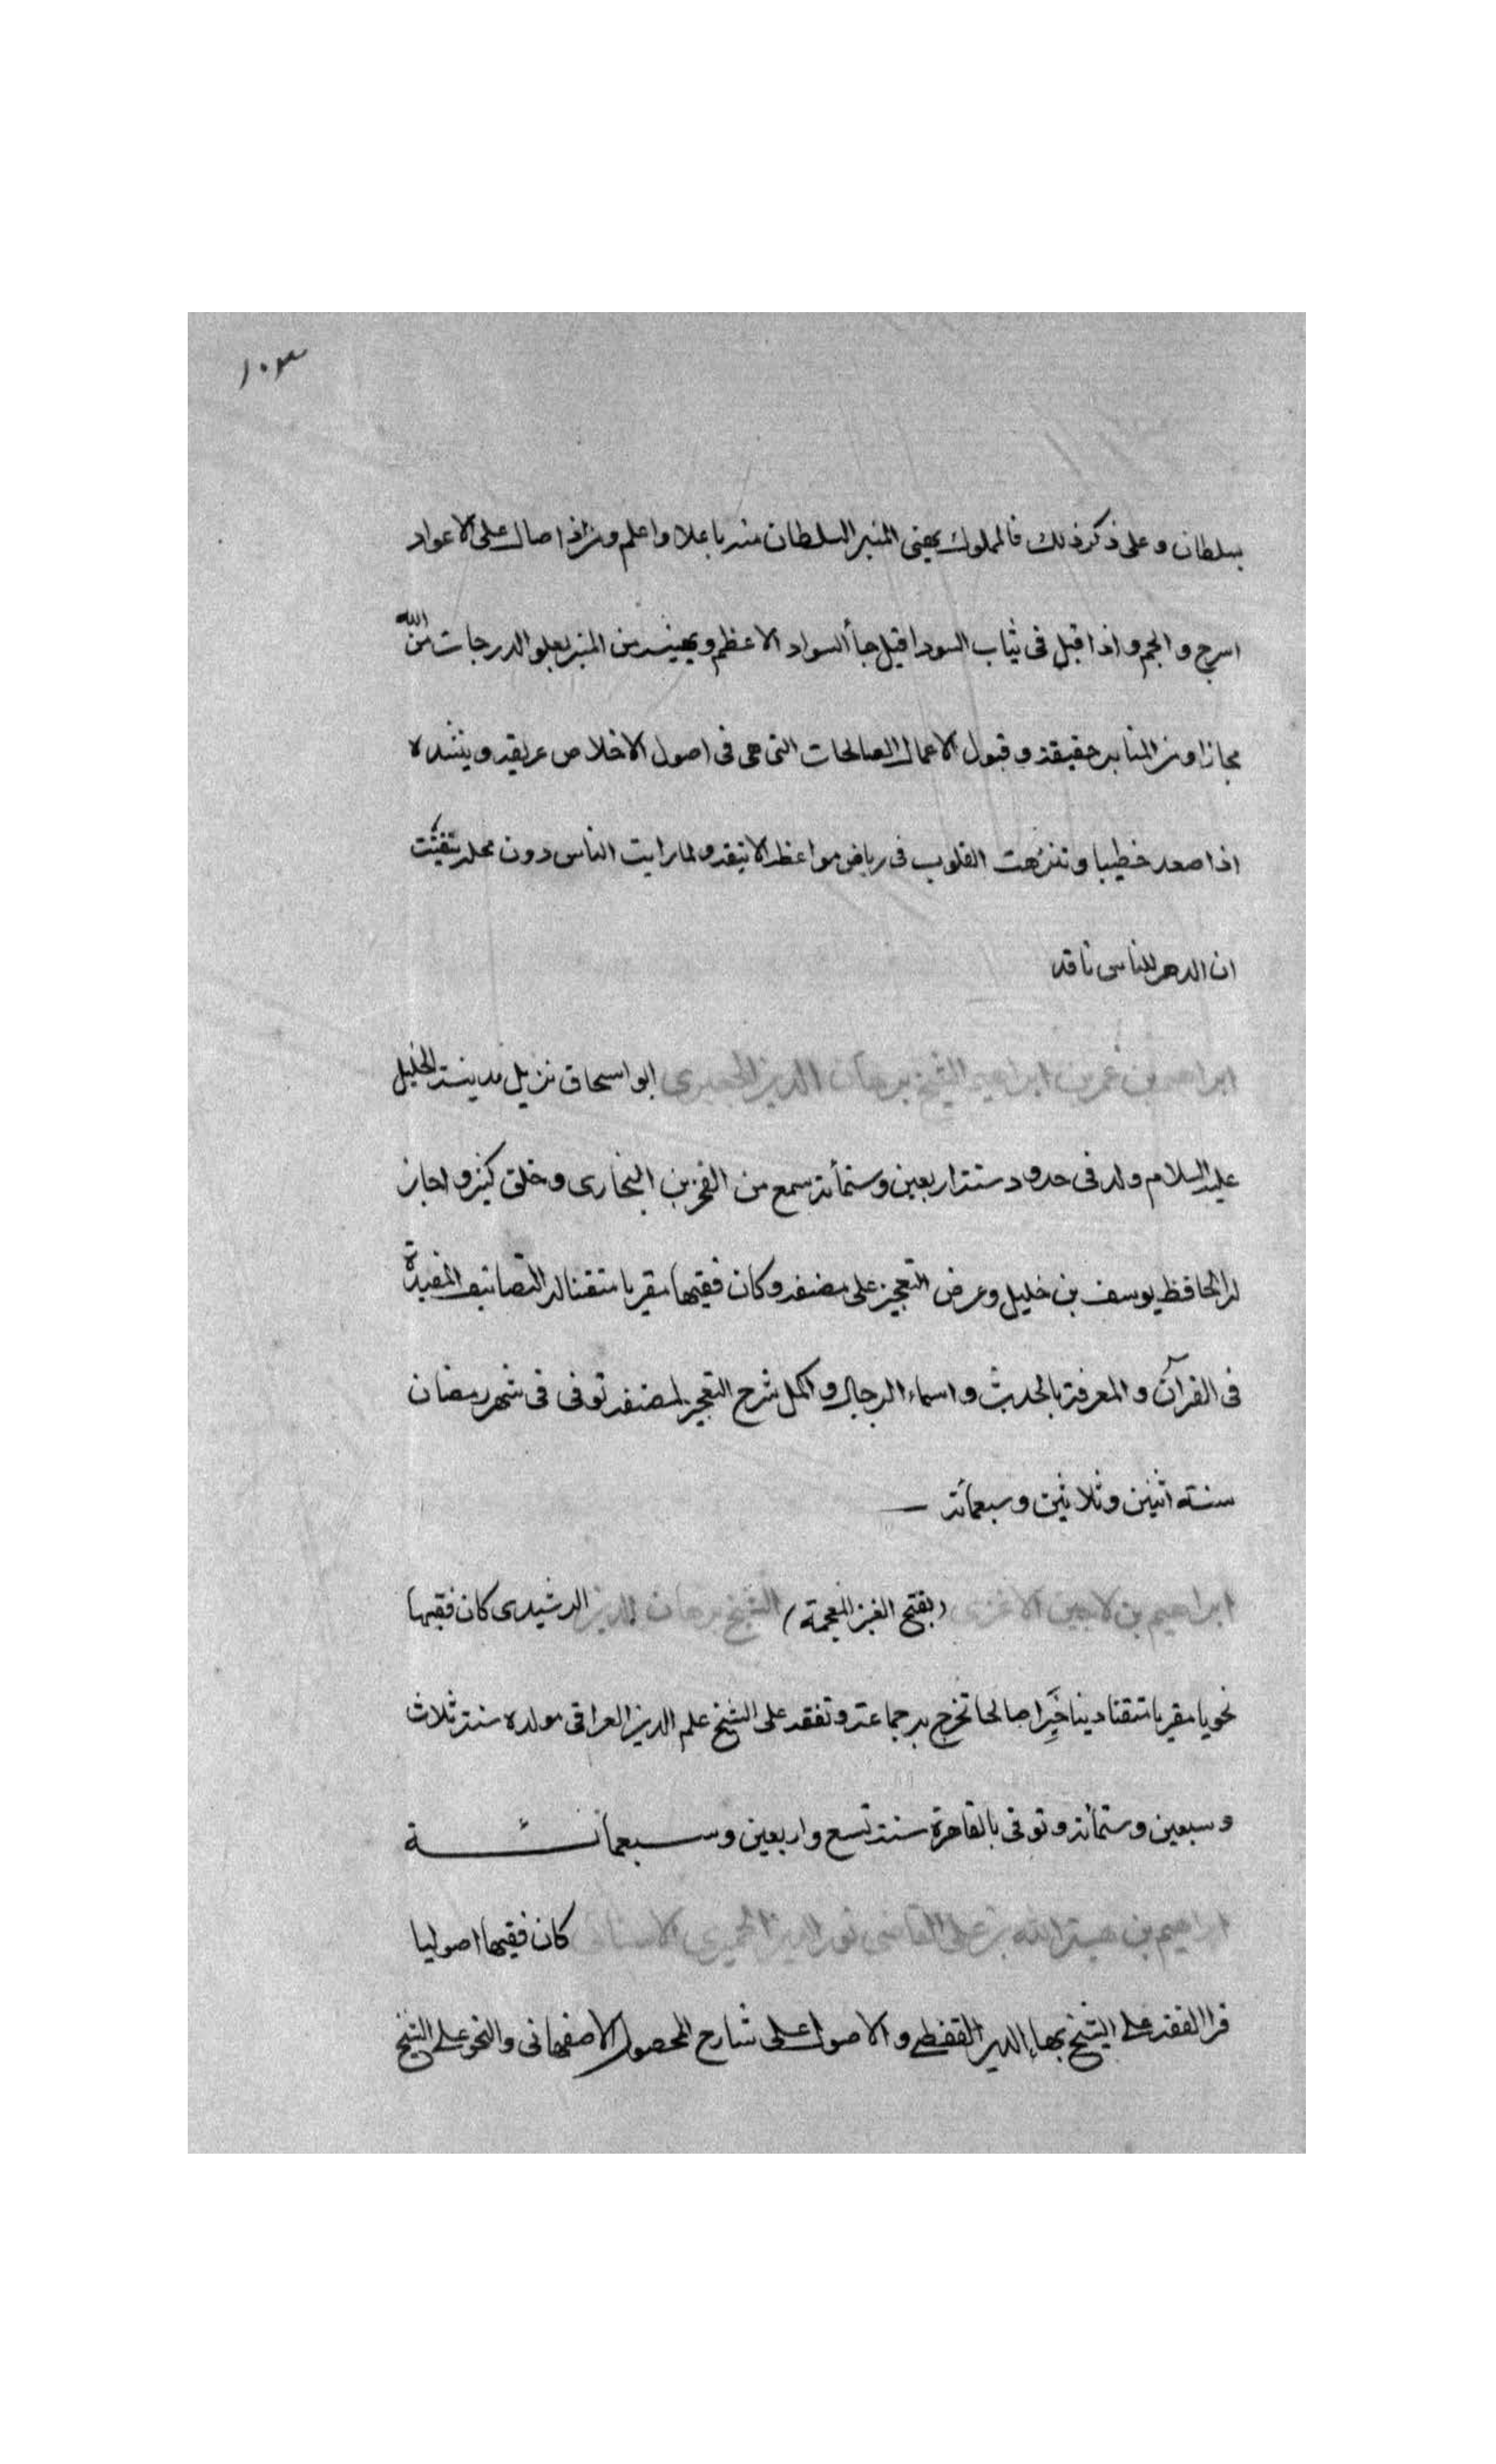 ١٠٣
بسلطان وعلى ذكر ذلك فالمملوك يهنى المنبر السلطان منه باعلا واعلم ومن اذا صال على الاعواد
اسرج والجم واذا قبل فى ثياب السود اقيل جأ السواد الاعظم ويهنيه من المنبر بعلو الدرجات من الله
مجازا ومن المنابر حقيقة وقبول الاعمال الصالحات التى هى فى اصول الاخلاص عريقه وينشده
اذا صعد خطيبا وتنزهت القلوب فى رياض مواعظه الانيقه ولما رايت الناس دون محله تيقنت
ان الدهر للناس ناقد
ابراهيم بن عمر بن ابراهيم الشيخ برهان الدين الجعبرى ابو اسحاق نزيل مدينة الخليل
عليه السلام ولد فى حدود سنة اربعين وستمأئة سمع من الفخر بن البخارى وخلق كثير واجاز
له الحافظ يوسف بن خليل وعرض التعجيز على مصنفه وكان فقيها مقريا متقنا له التصانيف المفيدة
فى القرآن والمعرفة بالحديث واسماء الرجال واكمل شرح التعجيز لمصنفه توفى فى شهر رمضان
سنة اثنين وثلاثين وسبعمائة
ابراهيم بن لاجين الاغرى (بفتح الغين المعجمة) الشيخ برهان الدين الرشيدى كان فقيها
نحويا مقريا متقنا دينا خَيِّرا صالحا تخرج به جماعة وتفقه على الشيخ علم الدين العراقى مولده سنة ثلاث
وسبعين وستمأئة وتوفى بالقاهرة سنة تسع واربعين وسبعمائة
ابراهيم بن هبة الله بن على القاضى نور الدين الحميرى الاسنائى كان فقيها اصوليا
قرا الفقه على الشيخ بهاء الدين القفطى والاصول على شارح المحصول الاصفهانى والنحو على الشيخ